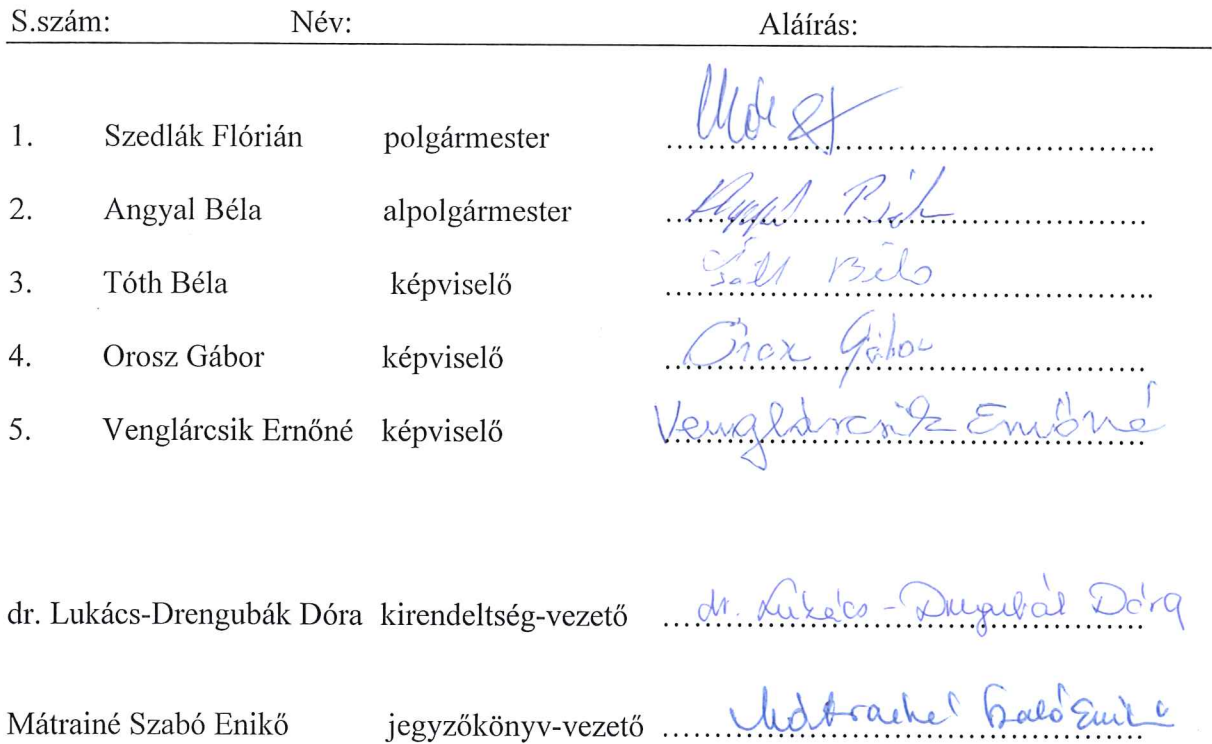 S.szám: Név: Aláírás:
1. Szedlák Flórián polgármester ……………………………………..
2. Angyal Béla alpolgármester ……………………………………
3. Tóth Béla képviselő Tóth Béla
4. Orosz Gábor képviselő Orosz Gábor
5. Venglárcsik Ernőné képviselő Venglárcsik Ernőné
dr. Lukács-Drengubák Dóra kirendeltség-vezető dr. Lukács-Drengubák Dóra
Mátrainé Szabó Enikő jegyzőkönyv-vezető Mátrainé Szabó Enikő